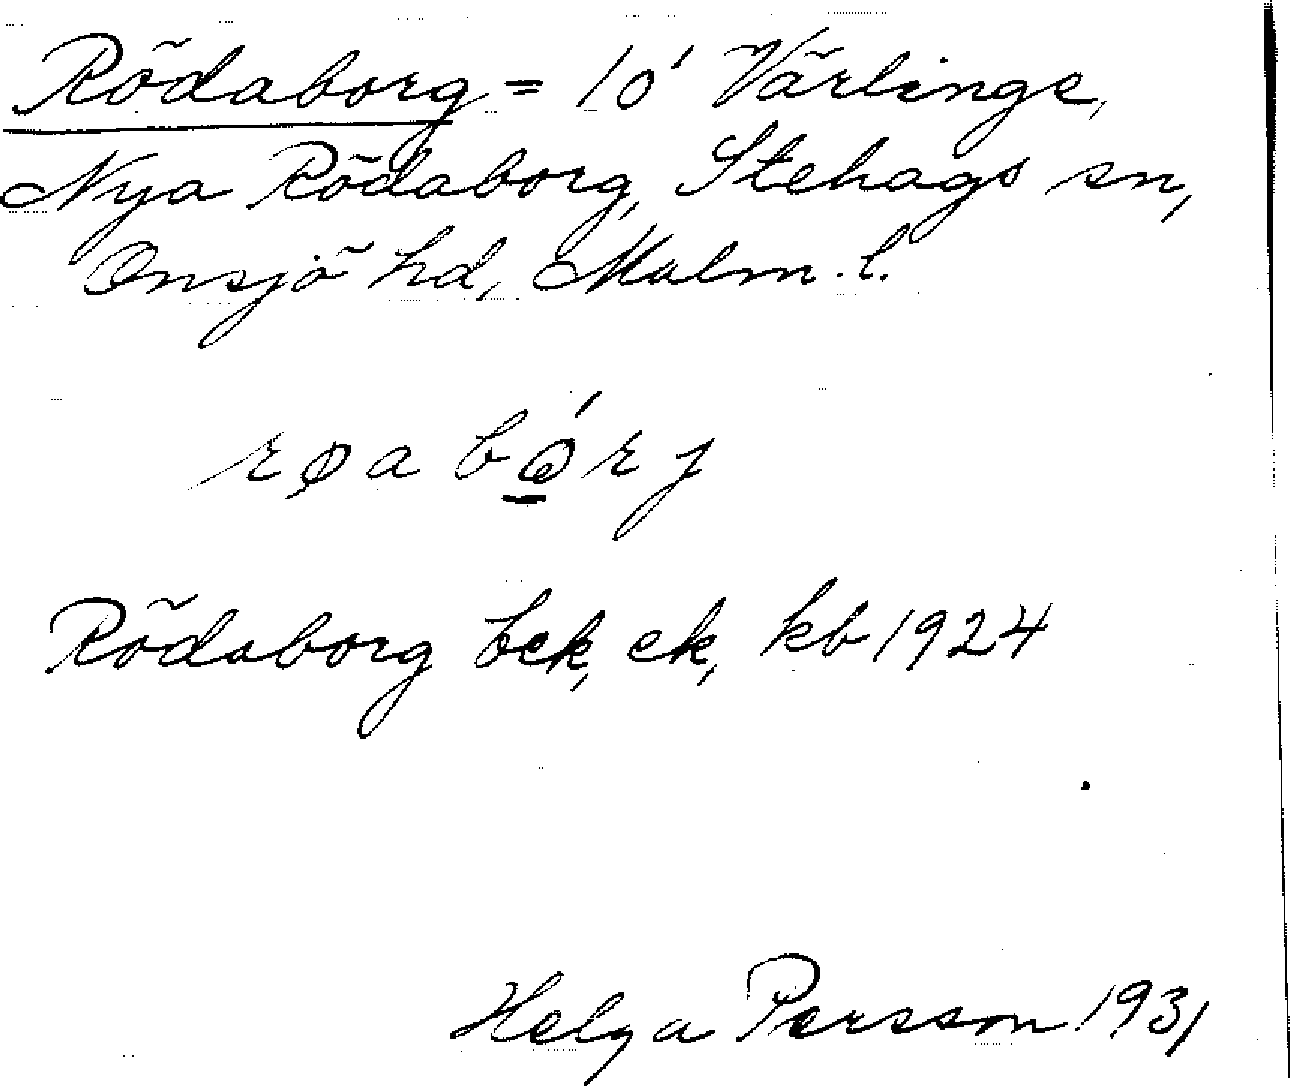 Rödaborg = 10' Värlinge,
Nya Rödaborg, Stehags sn,
Onsjö hd, Malm. l.
røa bǫ́rj
Rödaborg bek, ek, kb 1924
Helga Persson 1931